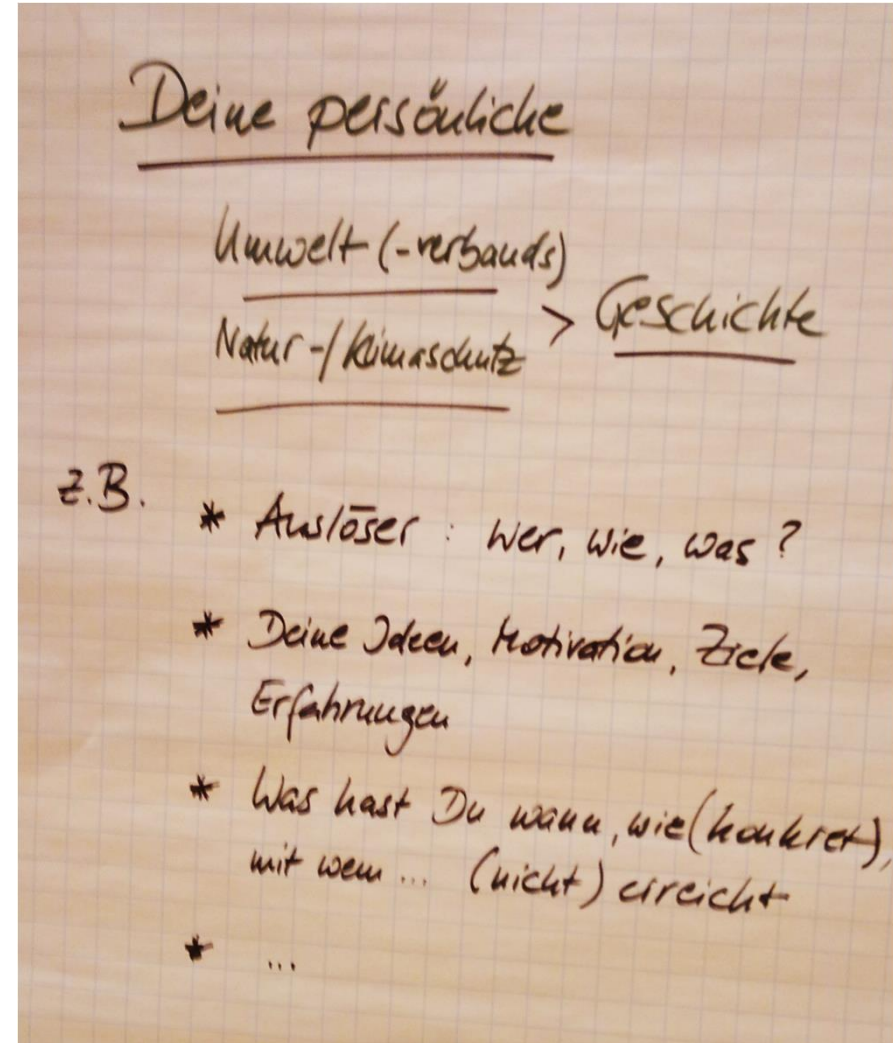 Deine persönliche
Umwelt (-verbands)
Natur-/Klimaschutz > Geschichte
z.B.
* Auslöser : Wer, wie, was ?
* Deine Ideen, Motivation, Ziele,
Erfahrungen
* Was hast Du wann, wie (konkret),
mit wem ... (nicht) erreicht
* ...